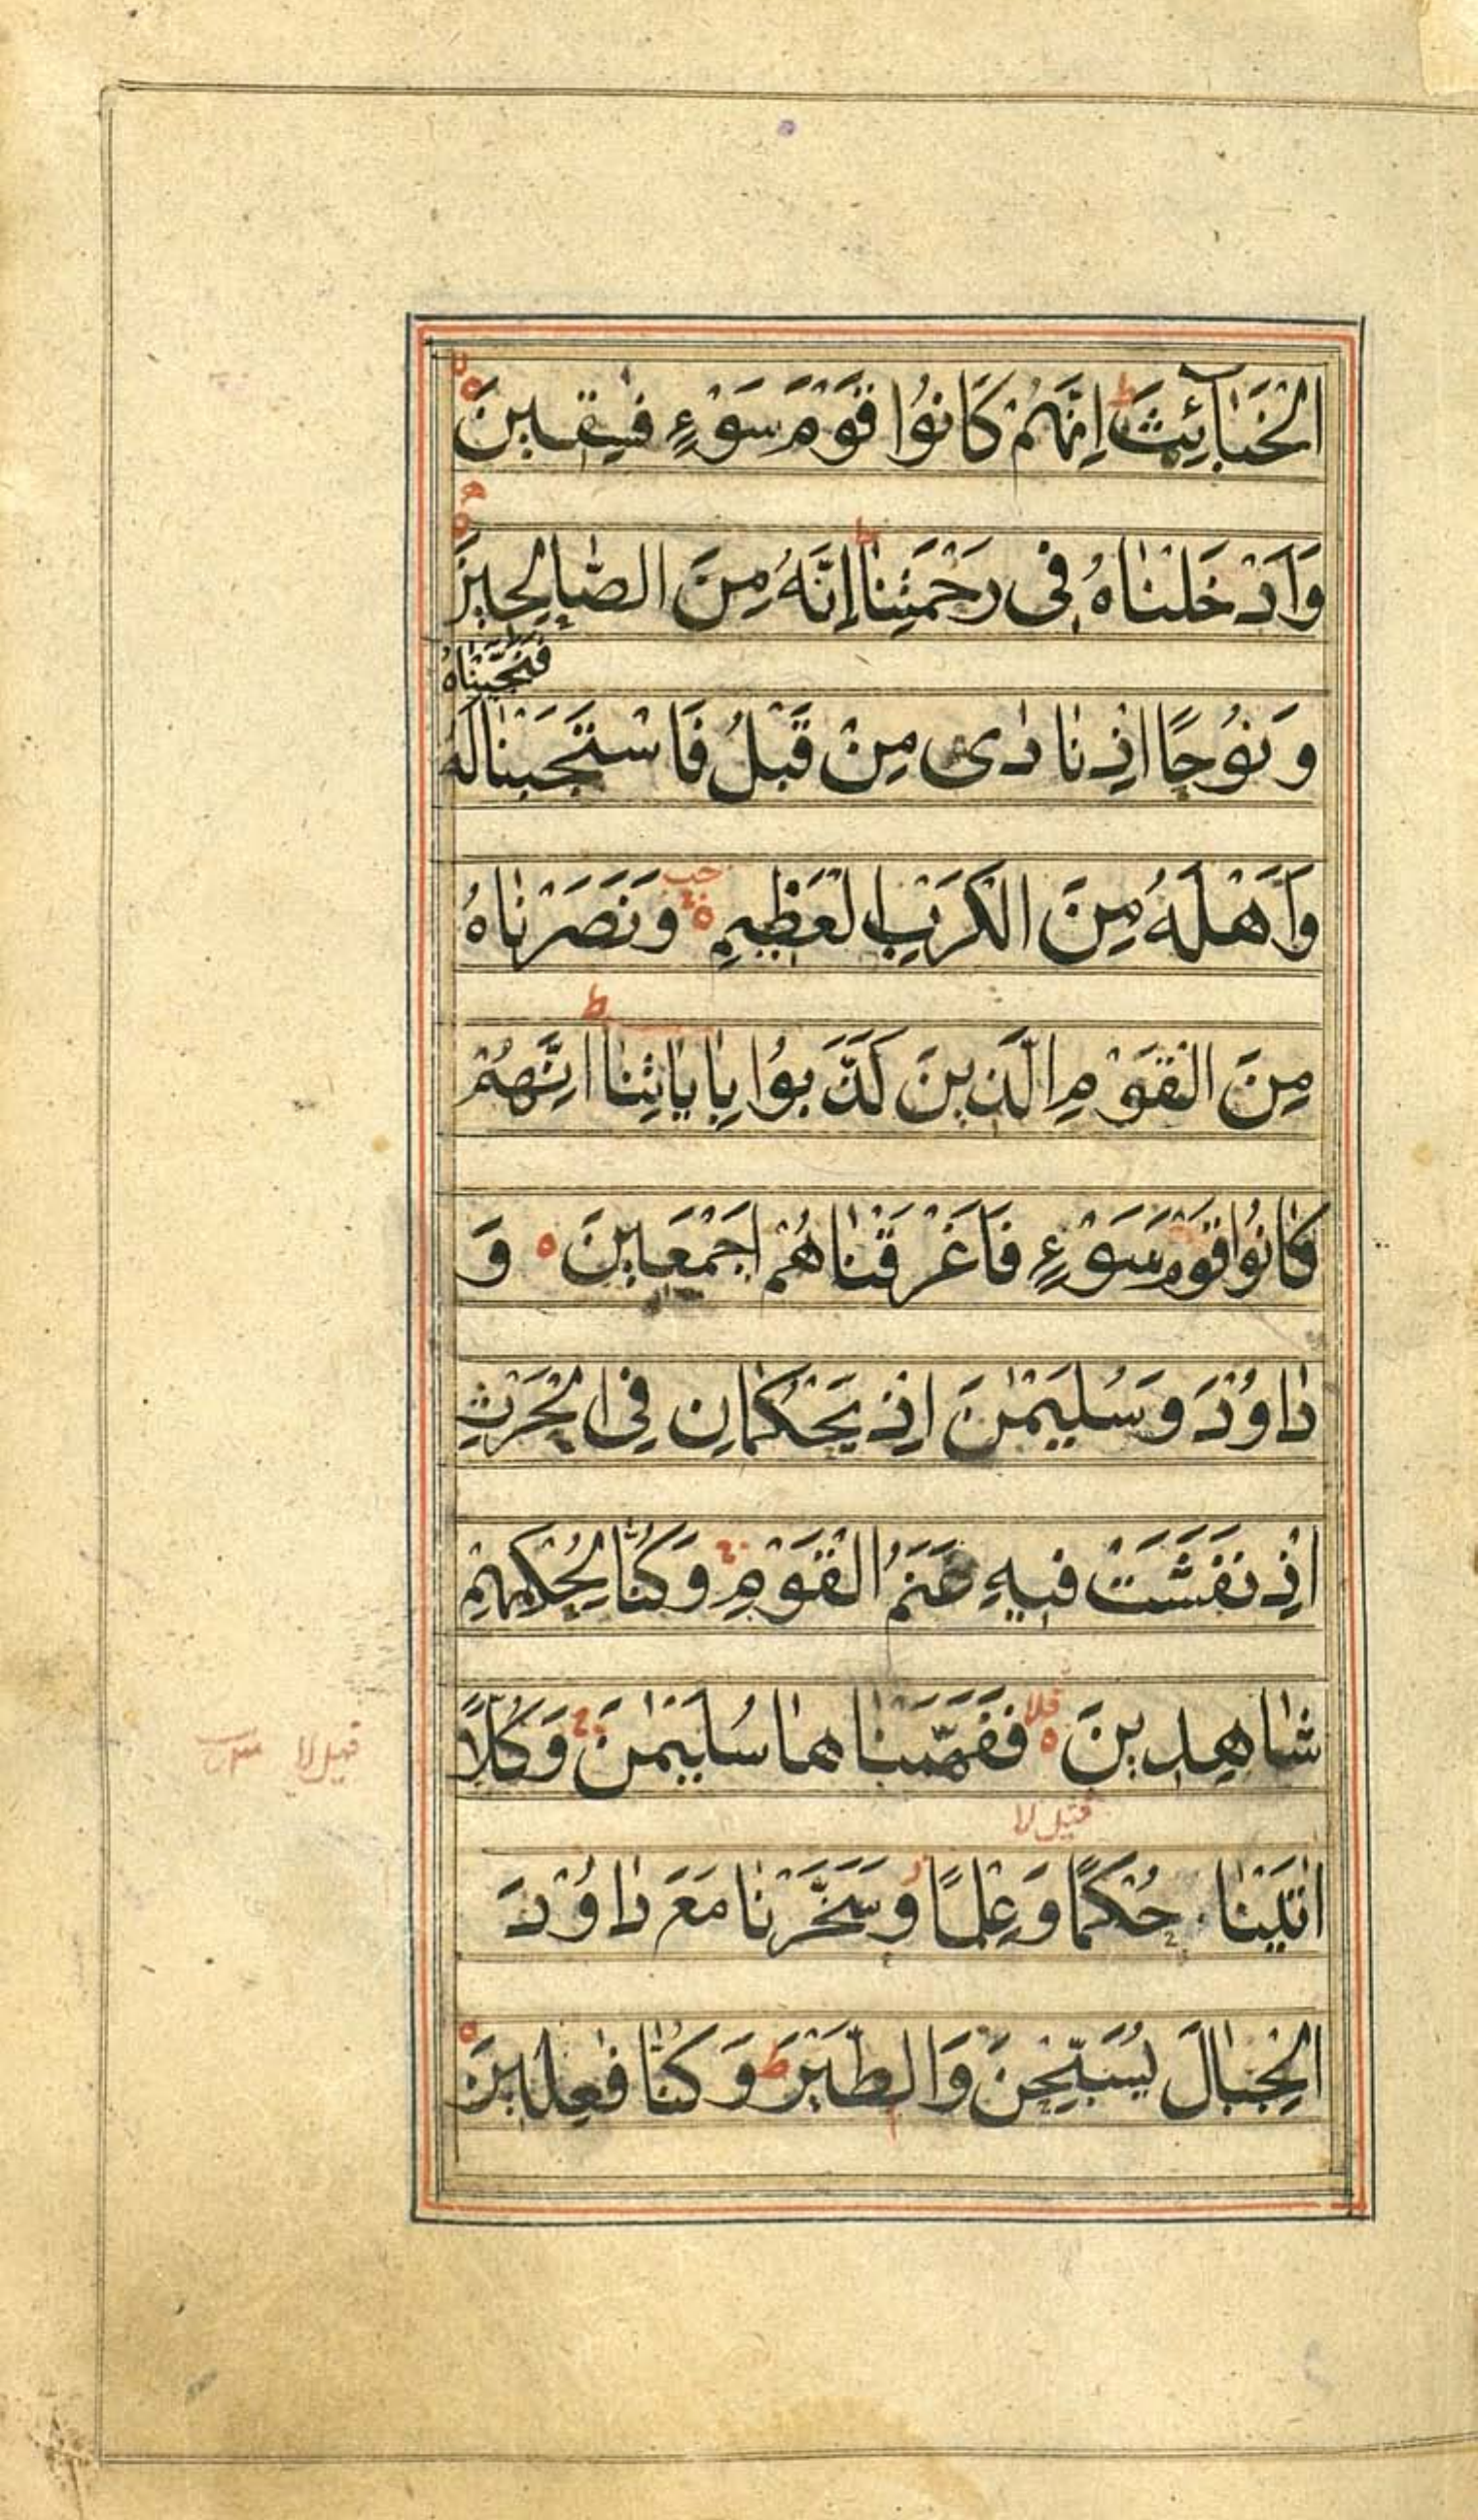 الْخَبَآئِثَ ط اِنَّهُمْ كَانُوْا قَوْمَ سَوْءٍ فٰسِقِينَ
وَاَدْخَلْنَاهُ فِى رَحْمَتِنَا ط اِنَّهُ مِنَ الصَّالِحِينَ
فَنَجَّيْنَاهُ
وَنُوْحًا اِذْ نَادٰى مِنْ قَبْلُ فَاسْتَجَبْنَا لَهُ
وَاَهْلَهُ مِنَ الْكَرْبِ الْعَظِيمِ وَنَصَرْنَاهُ
مِنَ الْقَوْمِ الَّذِينَ كَذَّبُوْا بِاٰيَاتِنَا ط اِنَّهُمْ
كَانُوْا قَوْمَ سَوْءٍ فَاَغْرَقْنَاهُمْ اَجْمَعِينَ وَ
دَاوُدَ وَسُلَيْمٰنَ اِذْ يَحْكُمَانِ فِى الْحَرْثِ
اِذْ نَفَشَتْ فِيهِ غَنَمُ الْقَوْمِ وَكُنَّا لِحُكْمِهِمْ
شَاهِدِينَ فَفَهَّمْنَاهَا سُلَيْمٰنَ وَكُلًّا
قيل لا
اٰتَيْنَا حُكْمًا وَعِلْمًا وَسَخَّرْنَا مَعَ دَاوُدَ
الْجِبَالَ يُسَبِّحْنَ وَالطَّيْرَ ط وَكُنَّا فٰعِلِينَ
قيل لا